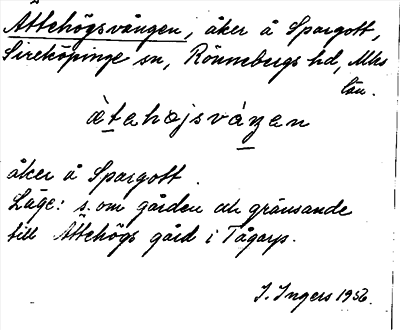 Ättehögsvången, åker å Spargott,
Sireköpinge sn, Rönnebergs hd, Mhs
län.
àtehøjsváŋen
åker å Spargott.
Läge: s. om gården och gränsande
till Ättehögs gård i Tågarp.
I. Ingers 1956.